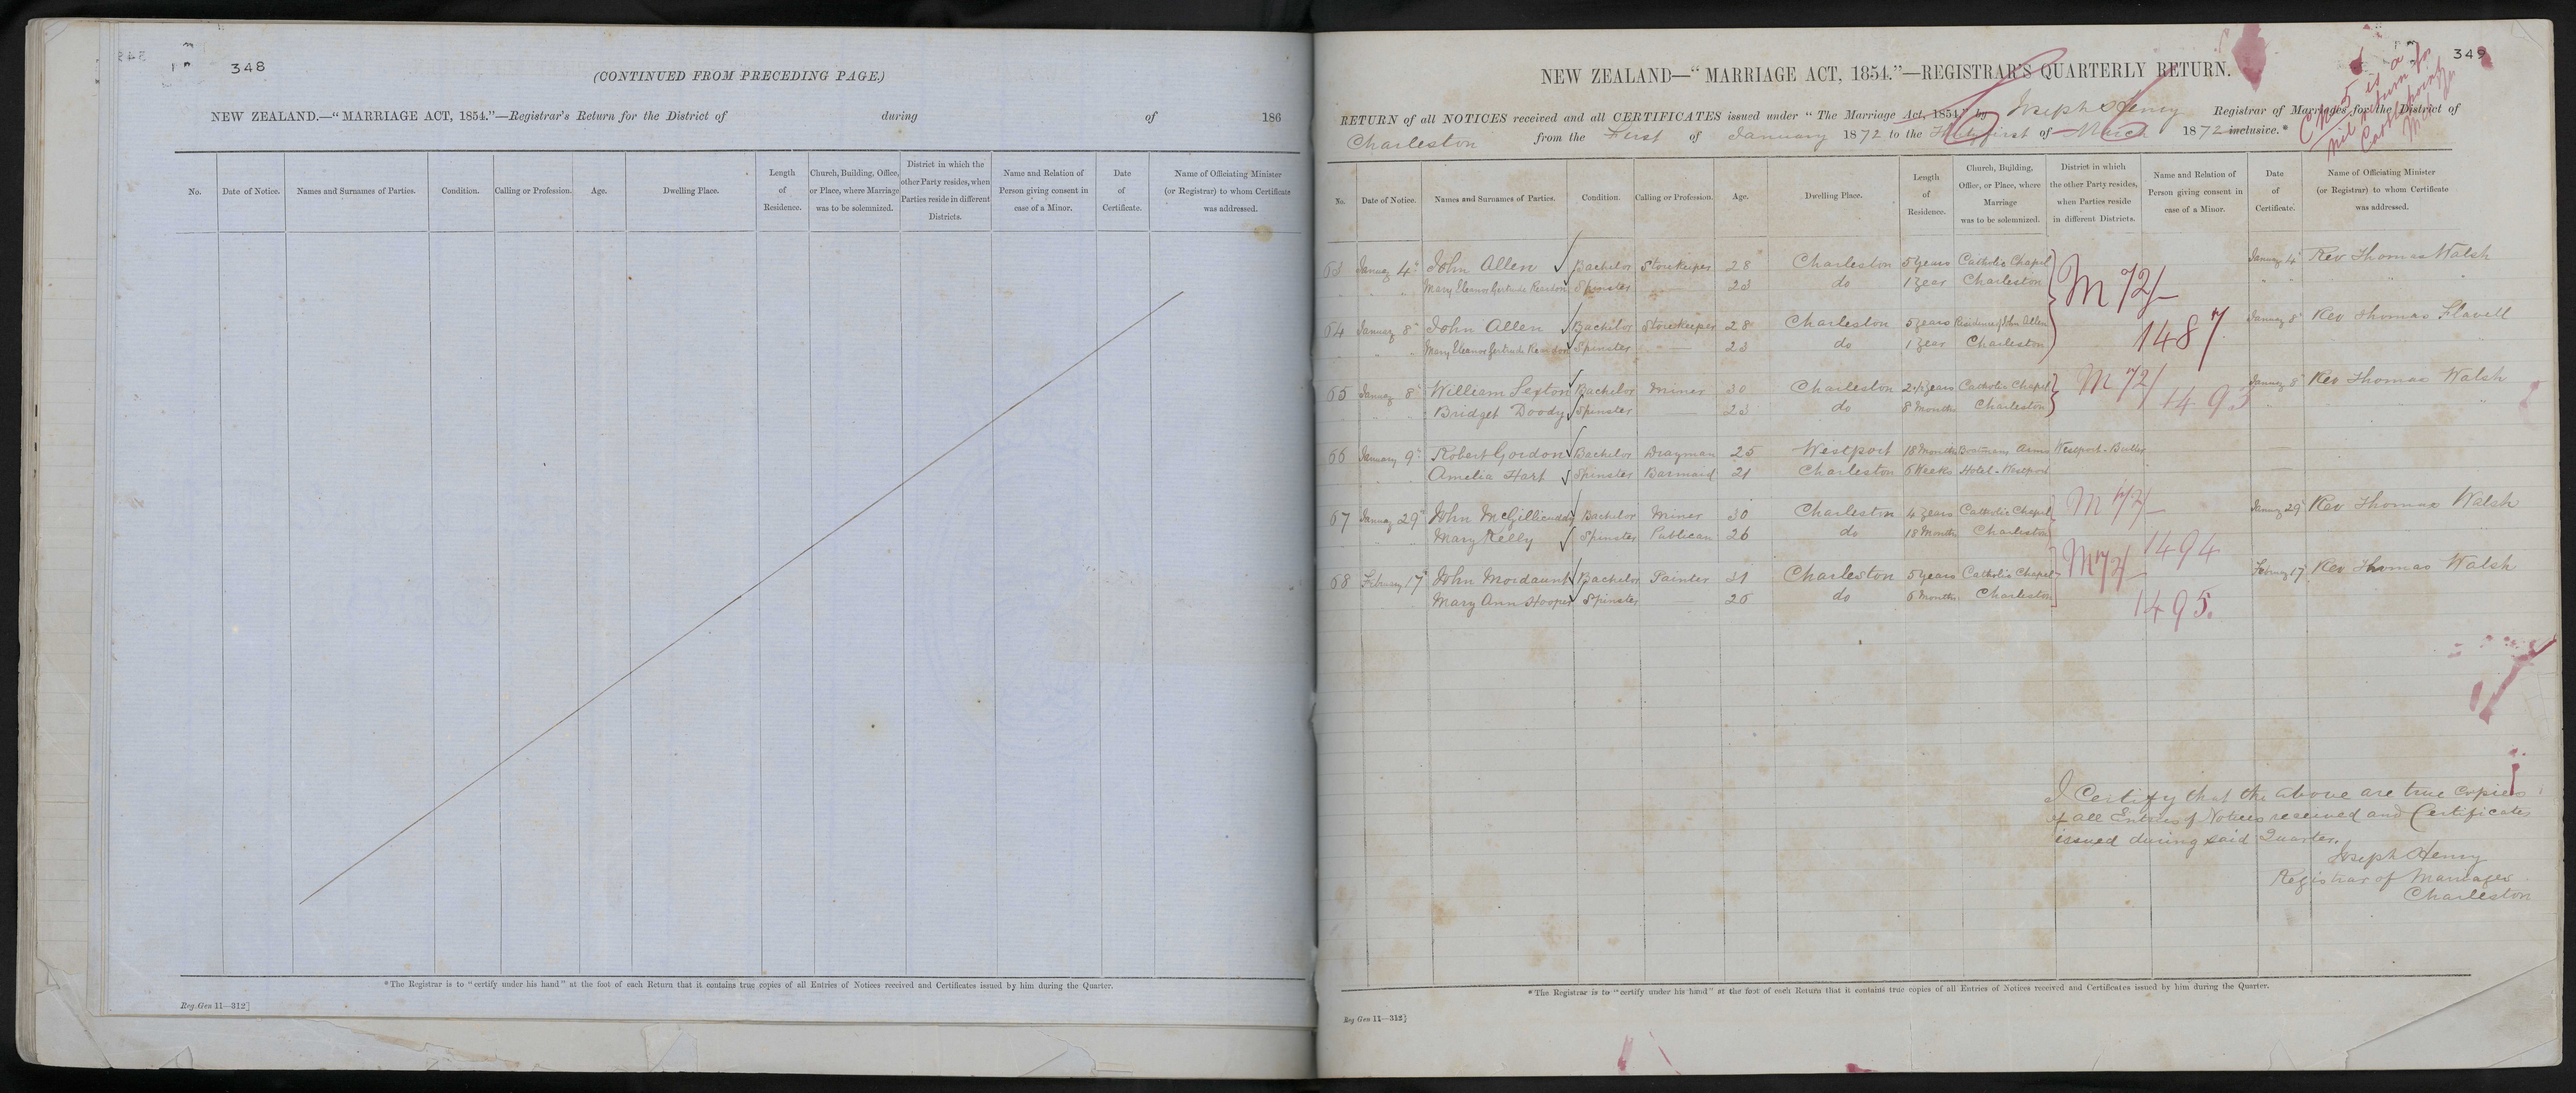 348
(CONTINUED FROM PRECEDING PAGE.)
NEW ZEALAND.—"MARRIAGE ACT, 1854."—Registrar's Return for the District of during of 186
No. Date of Notice. Names and Surnames of Parties. Condition. Calling or Profession. Age. Dwelling Place. Length of Residence. Church, Building, Office, or Place, where Marriage was to be solemnized. District in which the other Party resides, when Parties reside in different Districts. Name and Relation of Person giving consent in case of a Minor. Date of Certificate. Name of Officiating Minister (or Registrar) to whom Certificate was addressed.
*The Registrar is to "certify under his hand" at the foot of each Return that it contains true copies of all Entries of Notices received and Certificates issued by him during the Quarter.
Reg. Gen 11—312]
349
NEW ZEALAND—"MARRIAGE ACT, 1854."—REGISTRAR'S QUARTERLY RETURN.
RETURN of all NOTICES received and all CERTIFICATES issued under "The Marriage Act, 1854," by Joseph Henry Registrar of Marriages for the District of
Charleston from the First of January 1872 to the Thirty first of March 1872 inclusive.*
5 is a
nil return for
No. Date of Notice. Names and Surnames of Parties. Condition. Calling or Profession. Age. Dwelling Place. Length of Residence. Church, Building, Office, or Place, where Marriage was to be solemnized. District in which the other Party resides, when Parties reside in different Districts. Name and Relation of Person giving consent in case of a Minor. Date of Certificate. Name of Officiating Minister (or Registrar) to whom Certificate was addressed.
63 January 4 John Allen Bachelor Storekeeper 28 Charleston 5 years Catholic Chapel January 4 Rev Thomas Walsh
Mary Eleanor Gertrude Reardon Spinster 23 do 1 year Charleston
M 72/
64 January 8 John Allen Bachelor Storekeeper 28 Charleston 5 years Residence of John Allen January 8 Rev Thomas Flavell
1487
Mary Eleanor Gertrude Reardon Spinster 23 do 1 year Charleston
65 January 8 William Sexton Bachelor Miner 30 Charleston 2½ years Catholic Chapel M 72/ January 8 Rev Thomas Walsh
Bridget Doody Spinster 23 do 8 Months Charleston 1493
66 January 9 Robert Gordon Bachelor Drayman 25 Westport 18 Months Boatmans Arms Westport - Buller
Amelia Hart Spinster Barmaid 21 Charleston 6 Weeks Hotel - Westport
67 January 29 John McGillicuddy Bachelor Miner 30 Charleston 4 years Catholic Chapel M 72/ January 29 Rev Thomas Walsh
Mary Kelly Spinster Publican 26 do 18 Months Charleston
1494
68 February 17 John Mordaunt Bachelor Painter 31 Charleston 5 years Catholic Chapel M 72/ February 17 Rev Thomas Walsh
Mary Ann Hooper Spinster 26 do 6 Months Charleston
1495.
I Certify that the above are true copies
of all Entries of Notices received and Certificates
issued during said Quarter.
Joseph Henry
Registrar of Marriages
Charleston
*The Registrar is to "certify under his hand" at the foot of each Return that it contains true copies of all Entries of Notices received and Certificates issued by him during the Quarter.
Reg Gen 11—312]